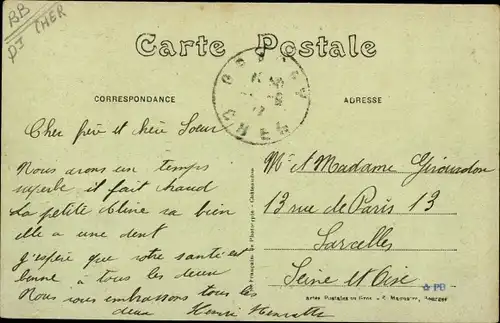 BB
DJ CHER
Carte Postale
CORRESPONDANCE
ADRESSE
CHER
Cher frère et chère Soeur
Nous avons un temps
superbe il fait chaud
La petite Aline va bien
elle a une dent
j'espère que votre santé est
bonne à tous les deux
Nous vous embrassons tous les
deux Henri Henriette
Mr et Madame Giroudon
13 rue de Paris 13
Sarcelles
Seine et Oise
☆ PD
Artes Postales en Gros - E. Maquaire, Bourges